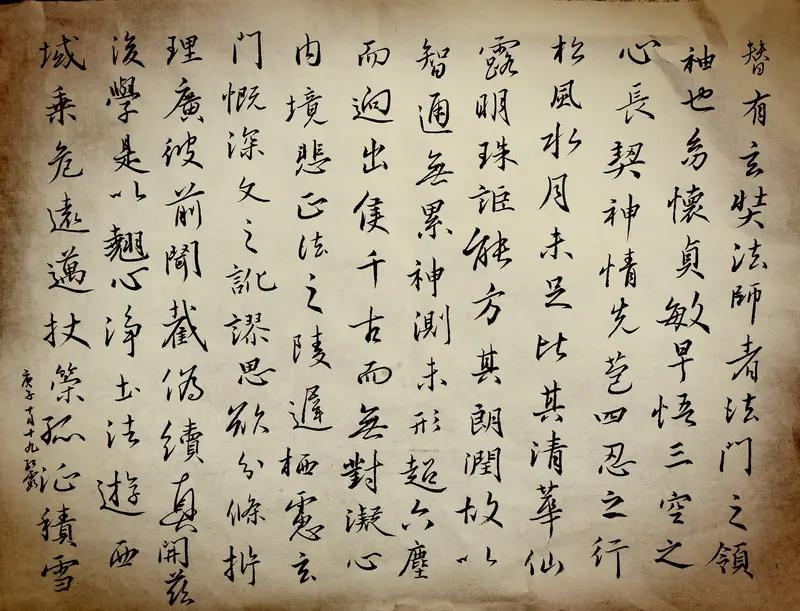 替有玄奘法師者法門之領
袖也幼懷貞敏早悟三空之
心長契神情先苞四忍之行
松風水月未足比其清華仙
露明珠詎能方其朗潤故以
智通無累神測未形超六塵
而迥出隻千古而無對凝心
內境悲正法之陵遲栖慮玄
門慨深文之訛謬思欲分條析
理廣彼前聞截偽續真開茲
後學是以翹心淨土法遊西
域乘危遠邁杖策孤征積雪
庚子月十九